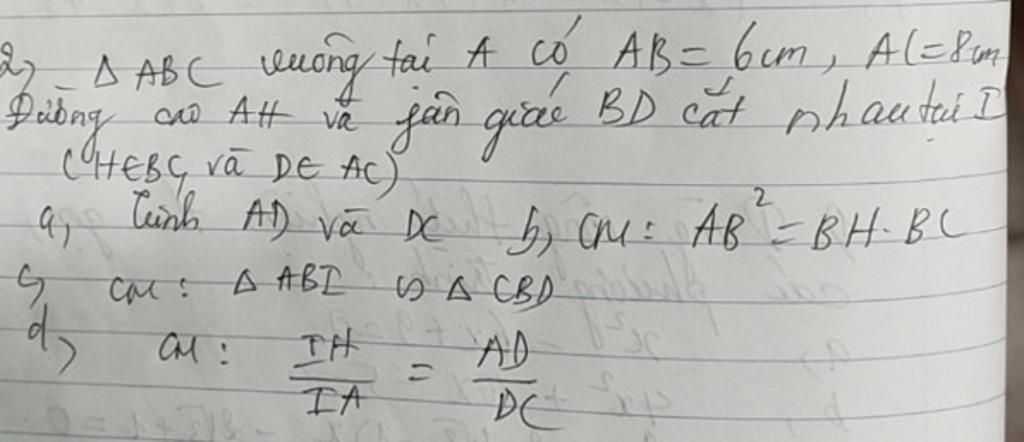 2, Δ ABC vuông tại A có AB = 6cm, AC = 8cm
Đường cao AH và phân giác BD cắt nhau tại I
(H∈BC, và D∈ AC)
a, Tính AD và DC b, CM: AB² = BH. BC
c, CM: Δ ABI ∽ Δ CBD
d, CM: IH/IA = AD/DC